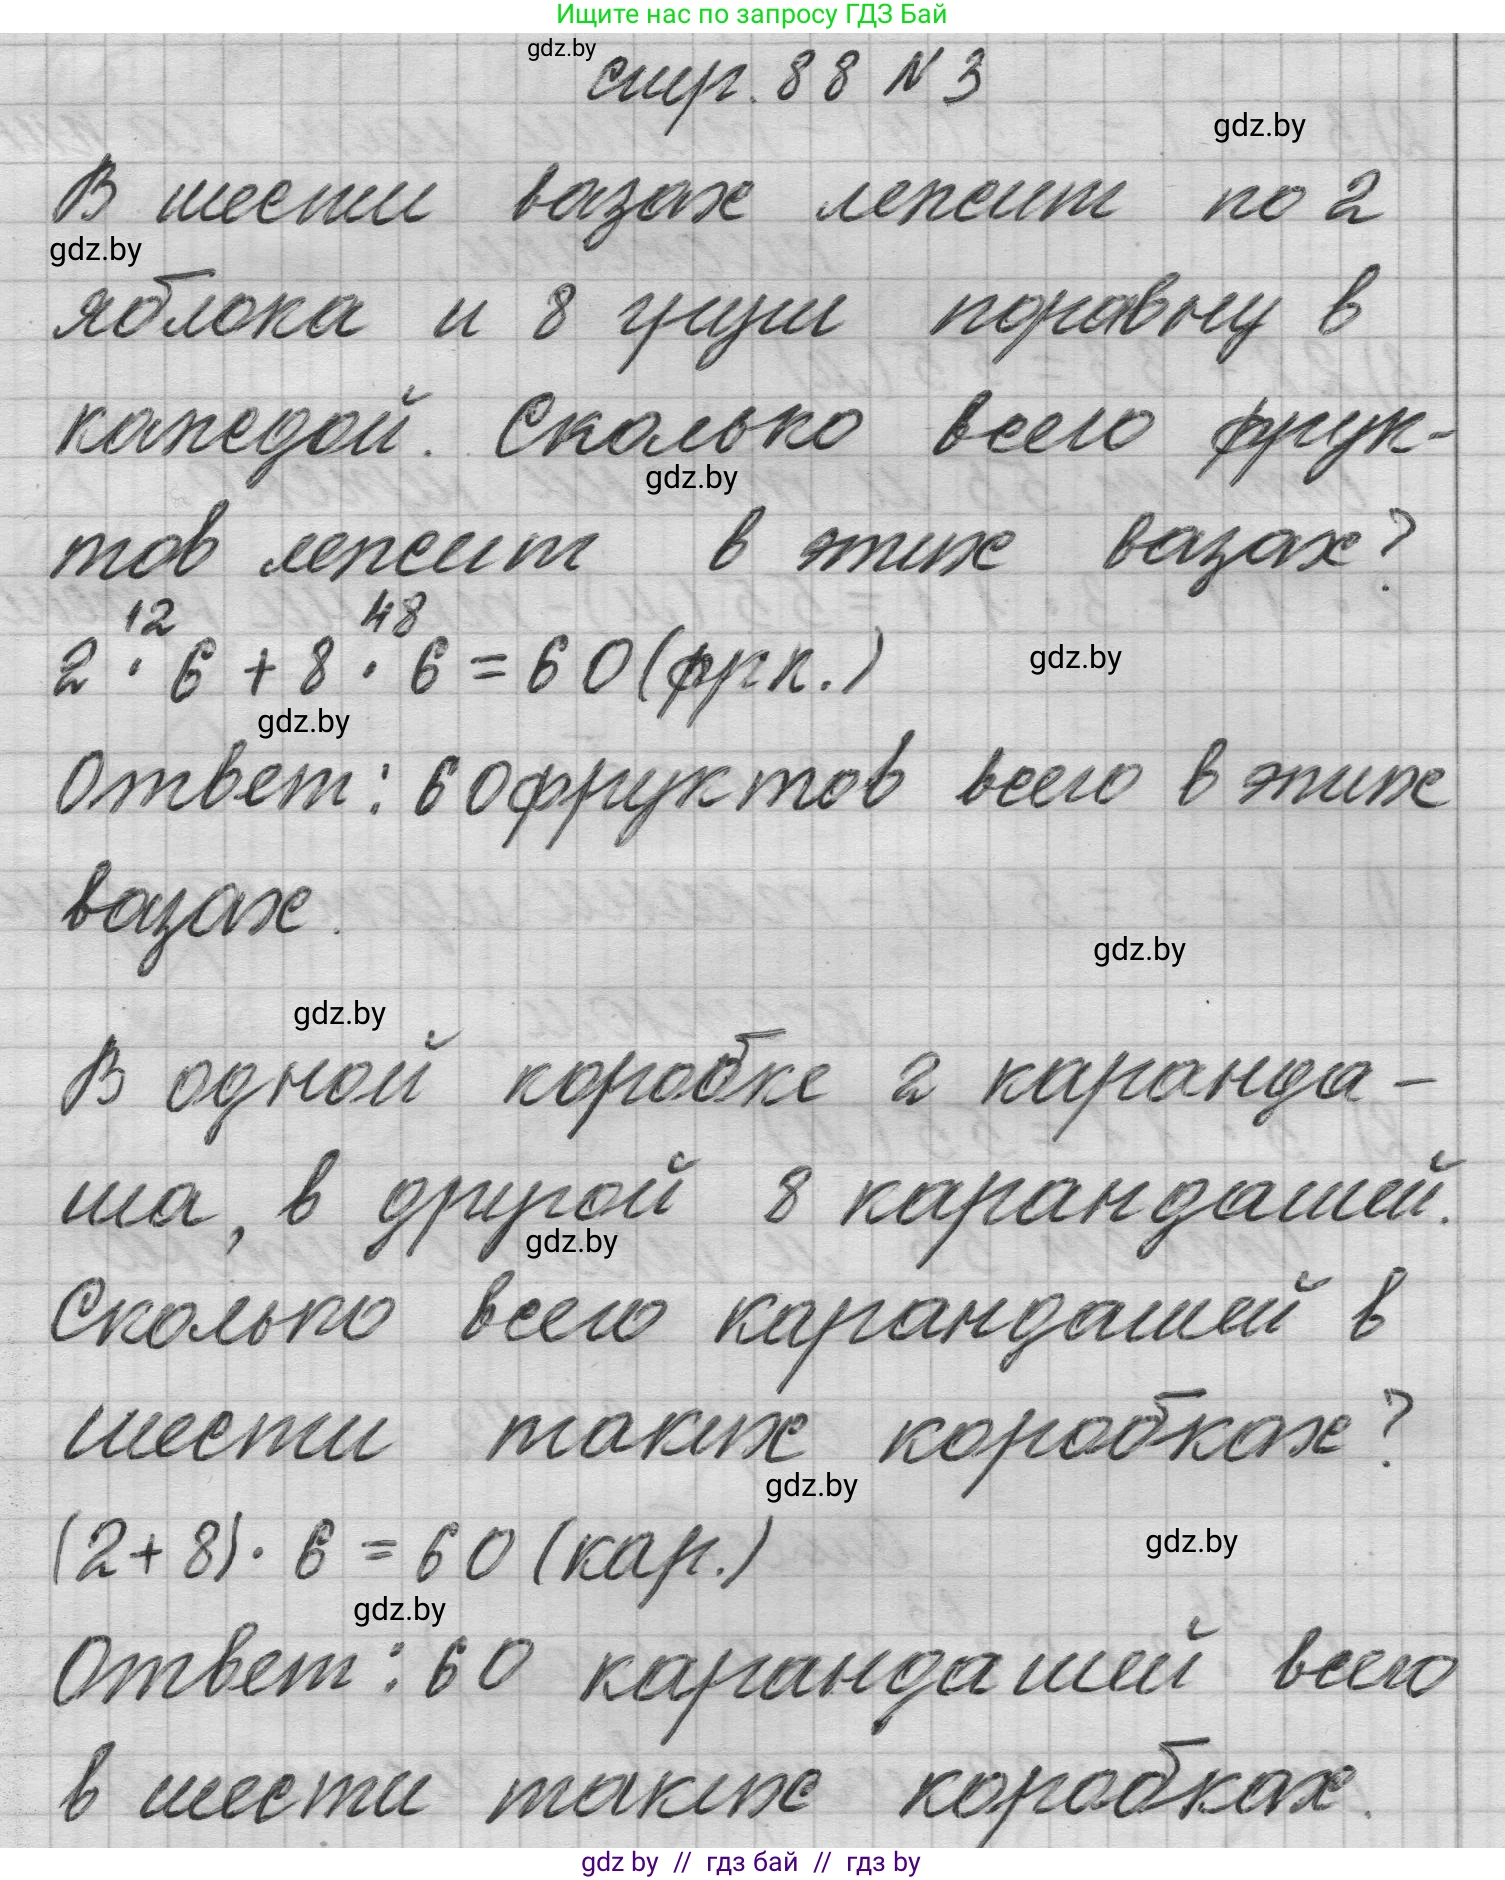 Ищите нас по запросу ГДЗ Бай
gdz.by
стр. 88 N 3
gdz.by
В шести вазах лежит по 2
gdz.by
яблока и 8 груш поравну в
каждой. Сколько всего фрук-
gdz.by
тов лежит в этих вазах?
12 48
2 · 6 + 8 · 6 = 60 (фрк.)
gdz.by
gdz.by
Ответ: 60 фруктов всего в этих
вазах.
gdz.by
gdz.by
В одной коробке 2 каранда-
ша, в другой 8 карандашей.
gdz.by
Сколько всего карандашей в
шести таких коробках?
gdz.by
(2+8) · 6 = 60 (кар.)
gdz.by
gdz.by
Ответ: 60 карандашей всего
в шести таких коробках.
gdz by // гдз бай // гдз by